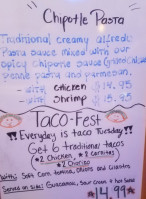 Chipotle Pasta
Traditional creamy alfredo
Pasta sauce mixed with our
spicy chipotle sauce
penne pasta and parmesan.
with Chicken $14.95
with Shrimp $15.95
TACO-Fest
Everyday is taco Tuesday!!
Get 6 traditional tacos
*2 Chicken, *2 Carnitas
*2 Chorizo
With: Soft Corn tortilla, Onions and Cilantro
Served on Side: Guacamole, Sour cream & hot salsa
$14.99